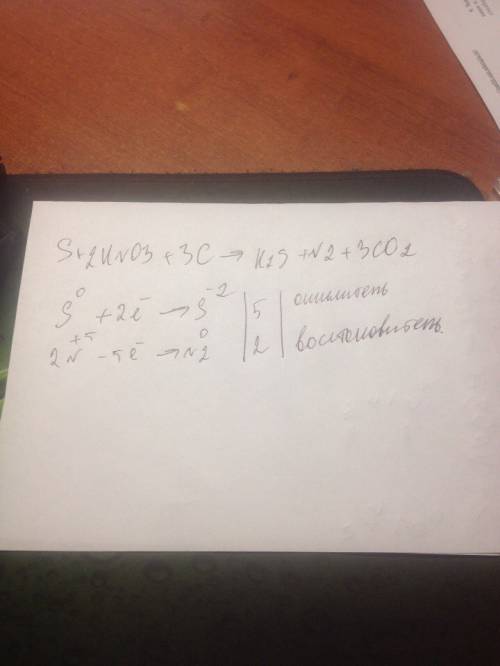 S+2KNO3 +3C → K2S +N2+3CO2
S⁰ +2ē → S⁻² | 5 | окислитель
2N⁺⁵ -5ē → N2⁰ | 2 | восстановитель.